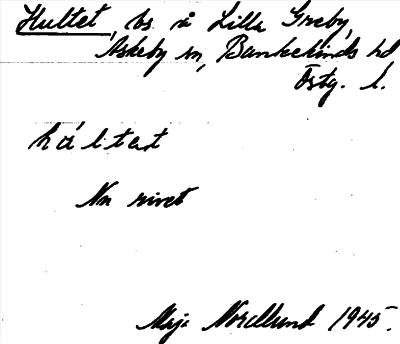 Hultet, bs. å Lilla Greby,
Askeby sn, Bankekinds hd
Östg. l.
húltet
Nu rivet
Maja Nordlund 1945.